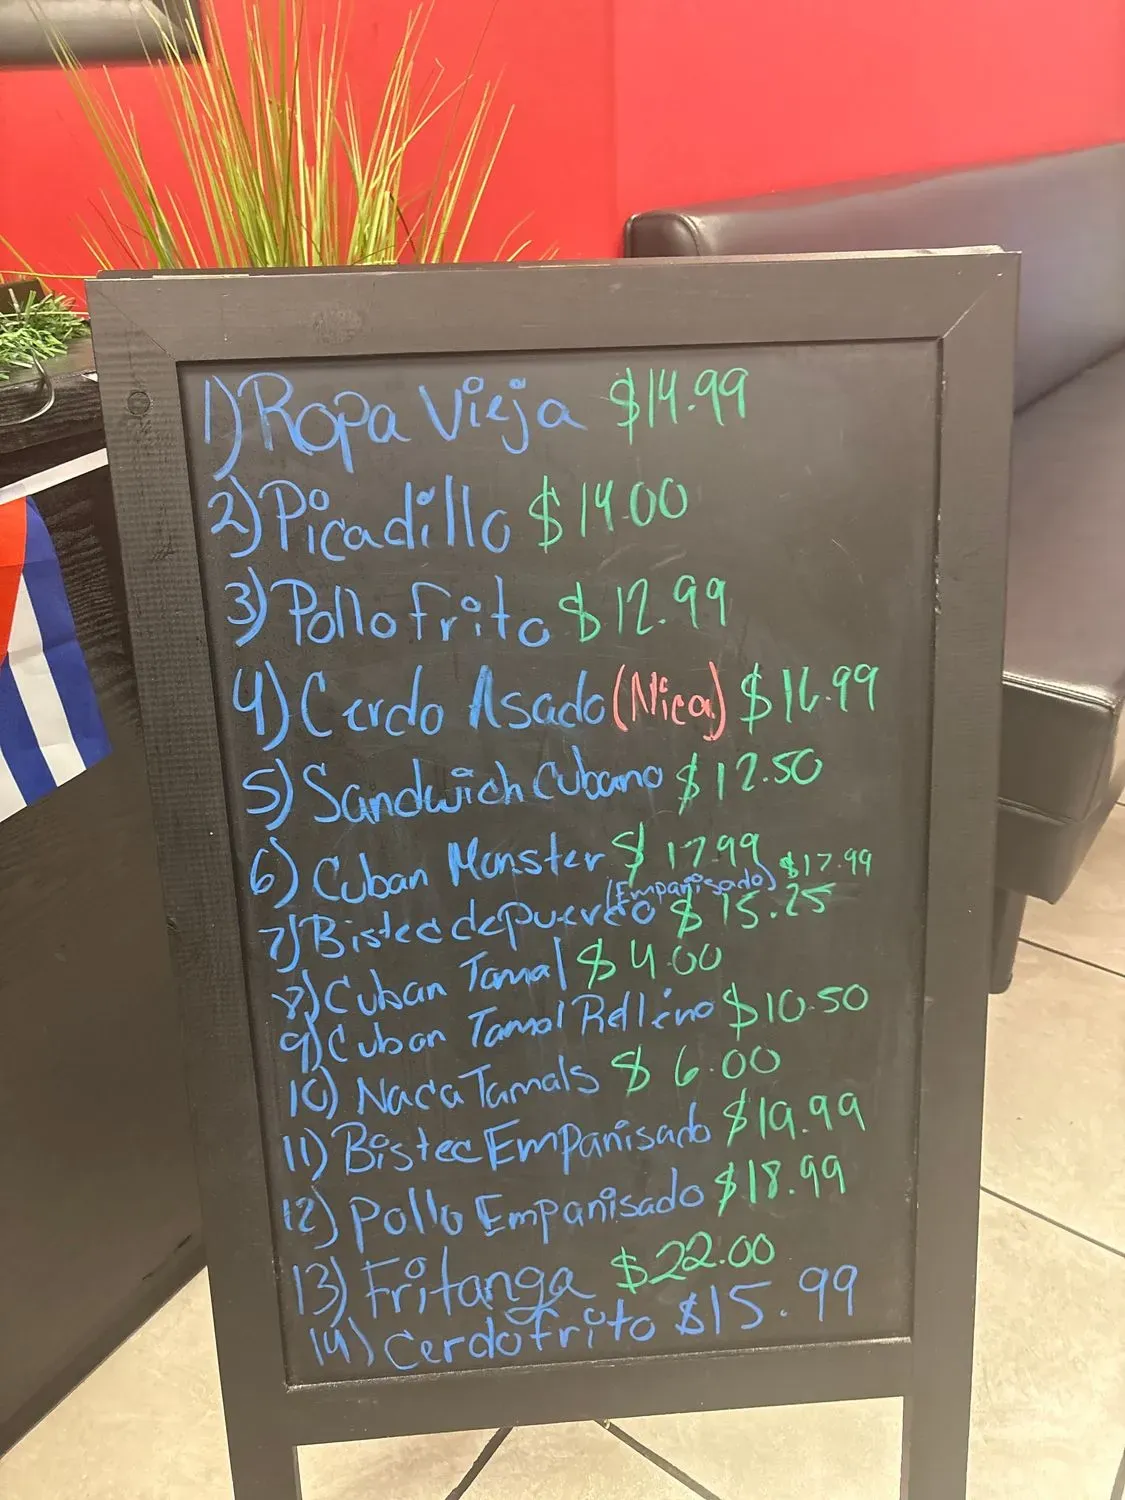 1) Ropa Vieja $14.99
2) Picadillo $14.00
3) Pollo frito $12.99
4) Cerdo Asado (Nica) $16.99
5) Sandwich Cubano $12.50
6) Cuban Monster $17.99
(Empanisado) $17.99
7) Bistec de puerco $15.25
8) Cuban Tamal $4.00
9) Cuban Tamal Relleno $10.50
10) Naca Tamals $6.00
11) Bistec Empanisado $19.99
12) Pollo Empanisado $18.99
13) Fritanga $22.00
14) Cerdo frito $15.99